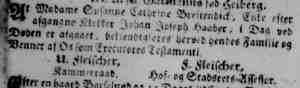 At Madame Susanne Cathrine Breitendich, Enke efter
afgangne Klokker Johan Joseph Haaber, i Dag ved
Døden er afgaaet, bekiendtgiøres herved hendes Familie og
Venner af Os som Executores Testamenti.
U. Fleischer, F. Fleischer,
Kammerraad. Hof- og Stadsrets-Assessor.
Efter en haard